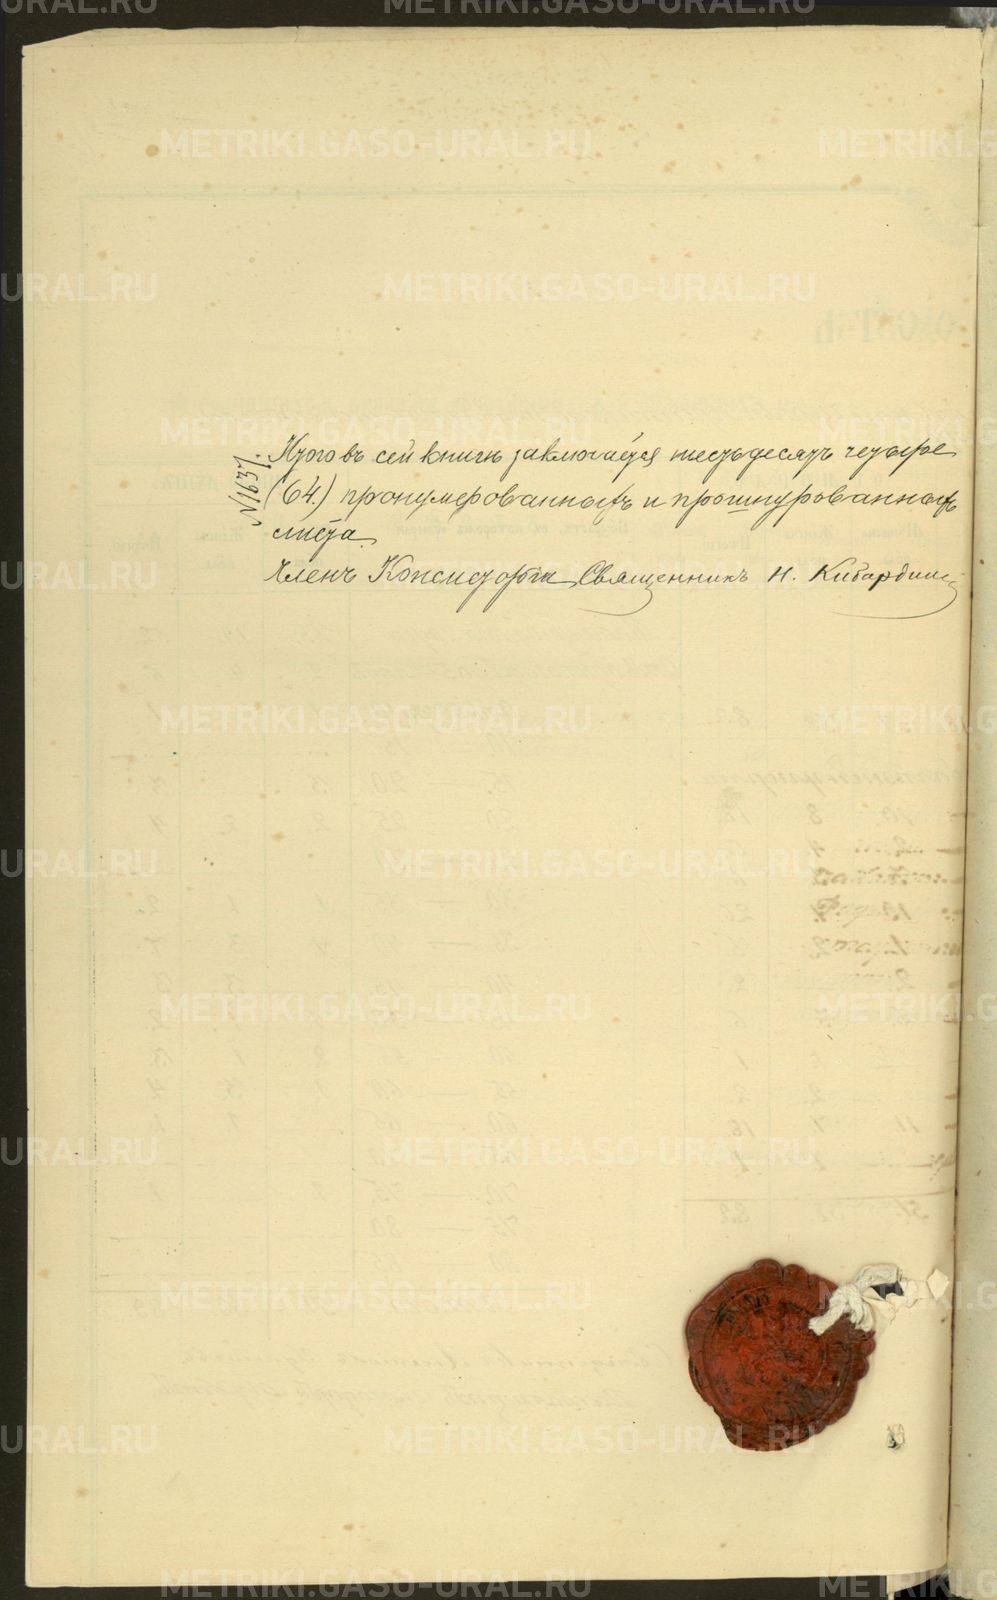 METRIKI.GASO-URAL.RU
Итого въ сей книгѣ заключается шестьдесятъ четыре
(64) пронумерованныхъ и прошнурованныхъ
листа.
Членъ Консисторіи, Священникъ Н. Кибардинъ